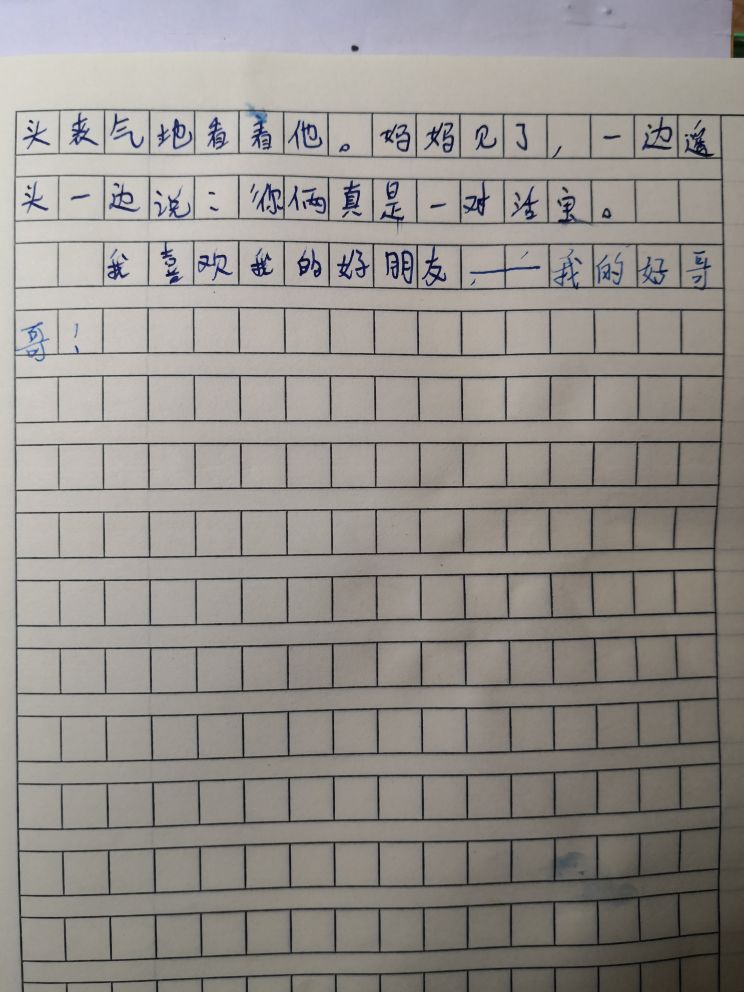 头丧气地看着他。妈妈见了，一边遥
头一边说：“你俩真是一对活宝。
我喜欢我的好朋友，——我的好哥
哥！